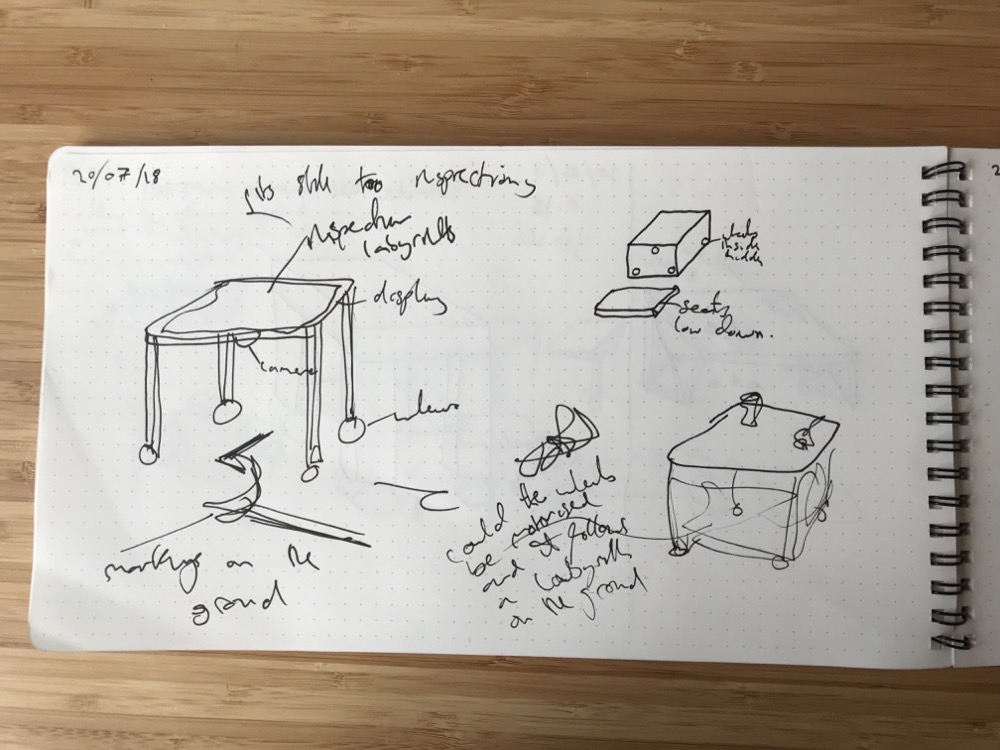 20/07/18
its still too
labyrinths
display
camera
wheels
markings on the
ground
wheels
inside
hidden
seating
low down.
could the wheels
be motorised
and it follows
a labyrinth
on the ground
2